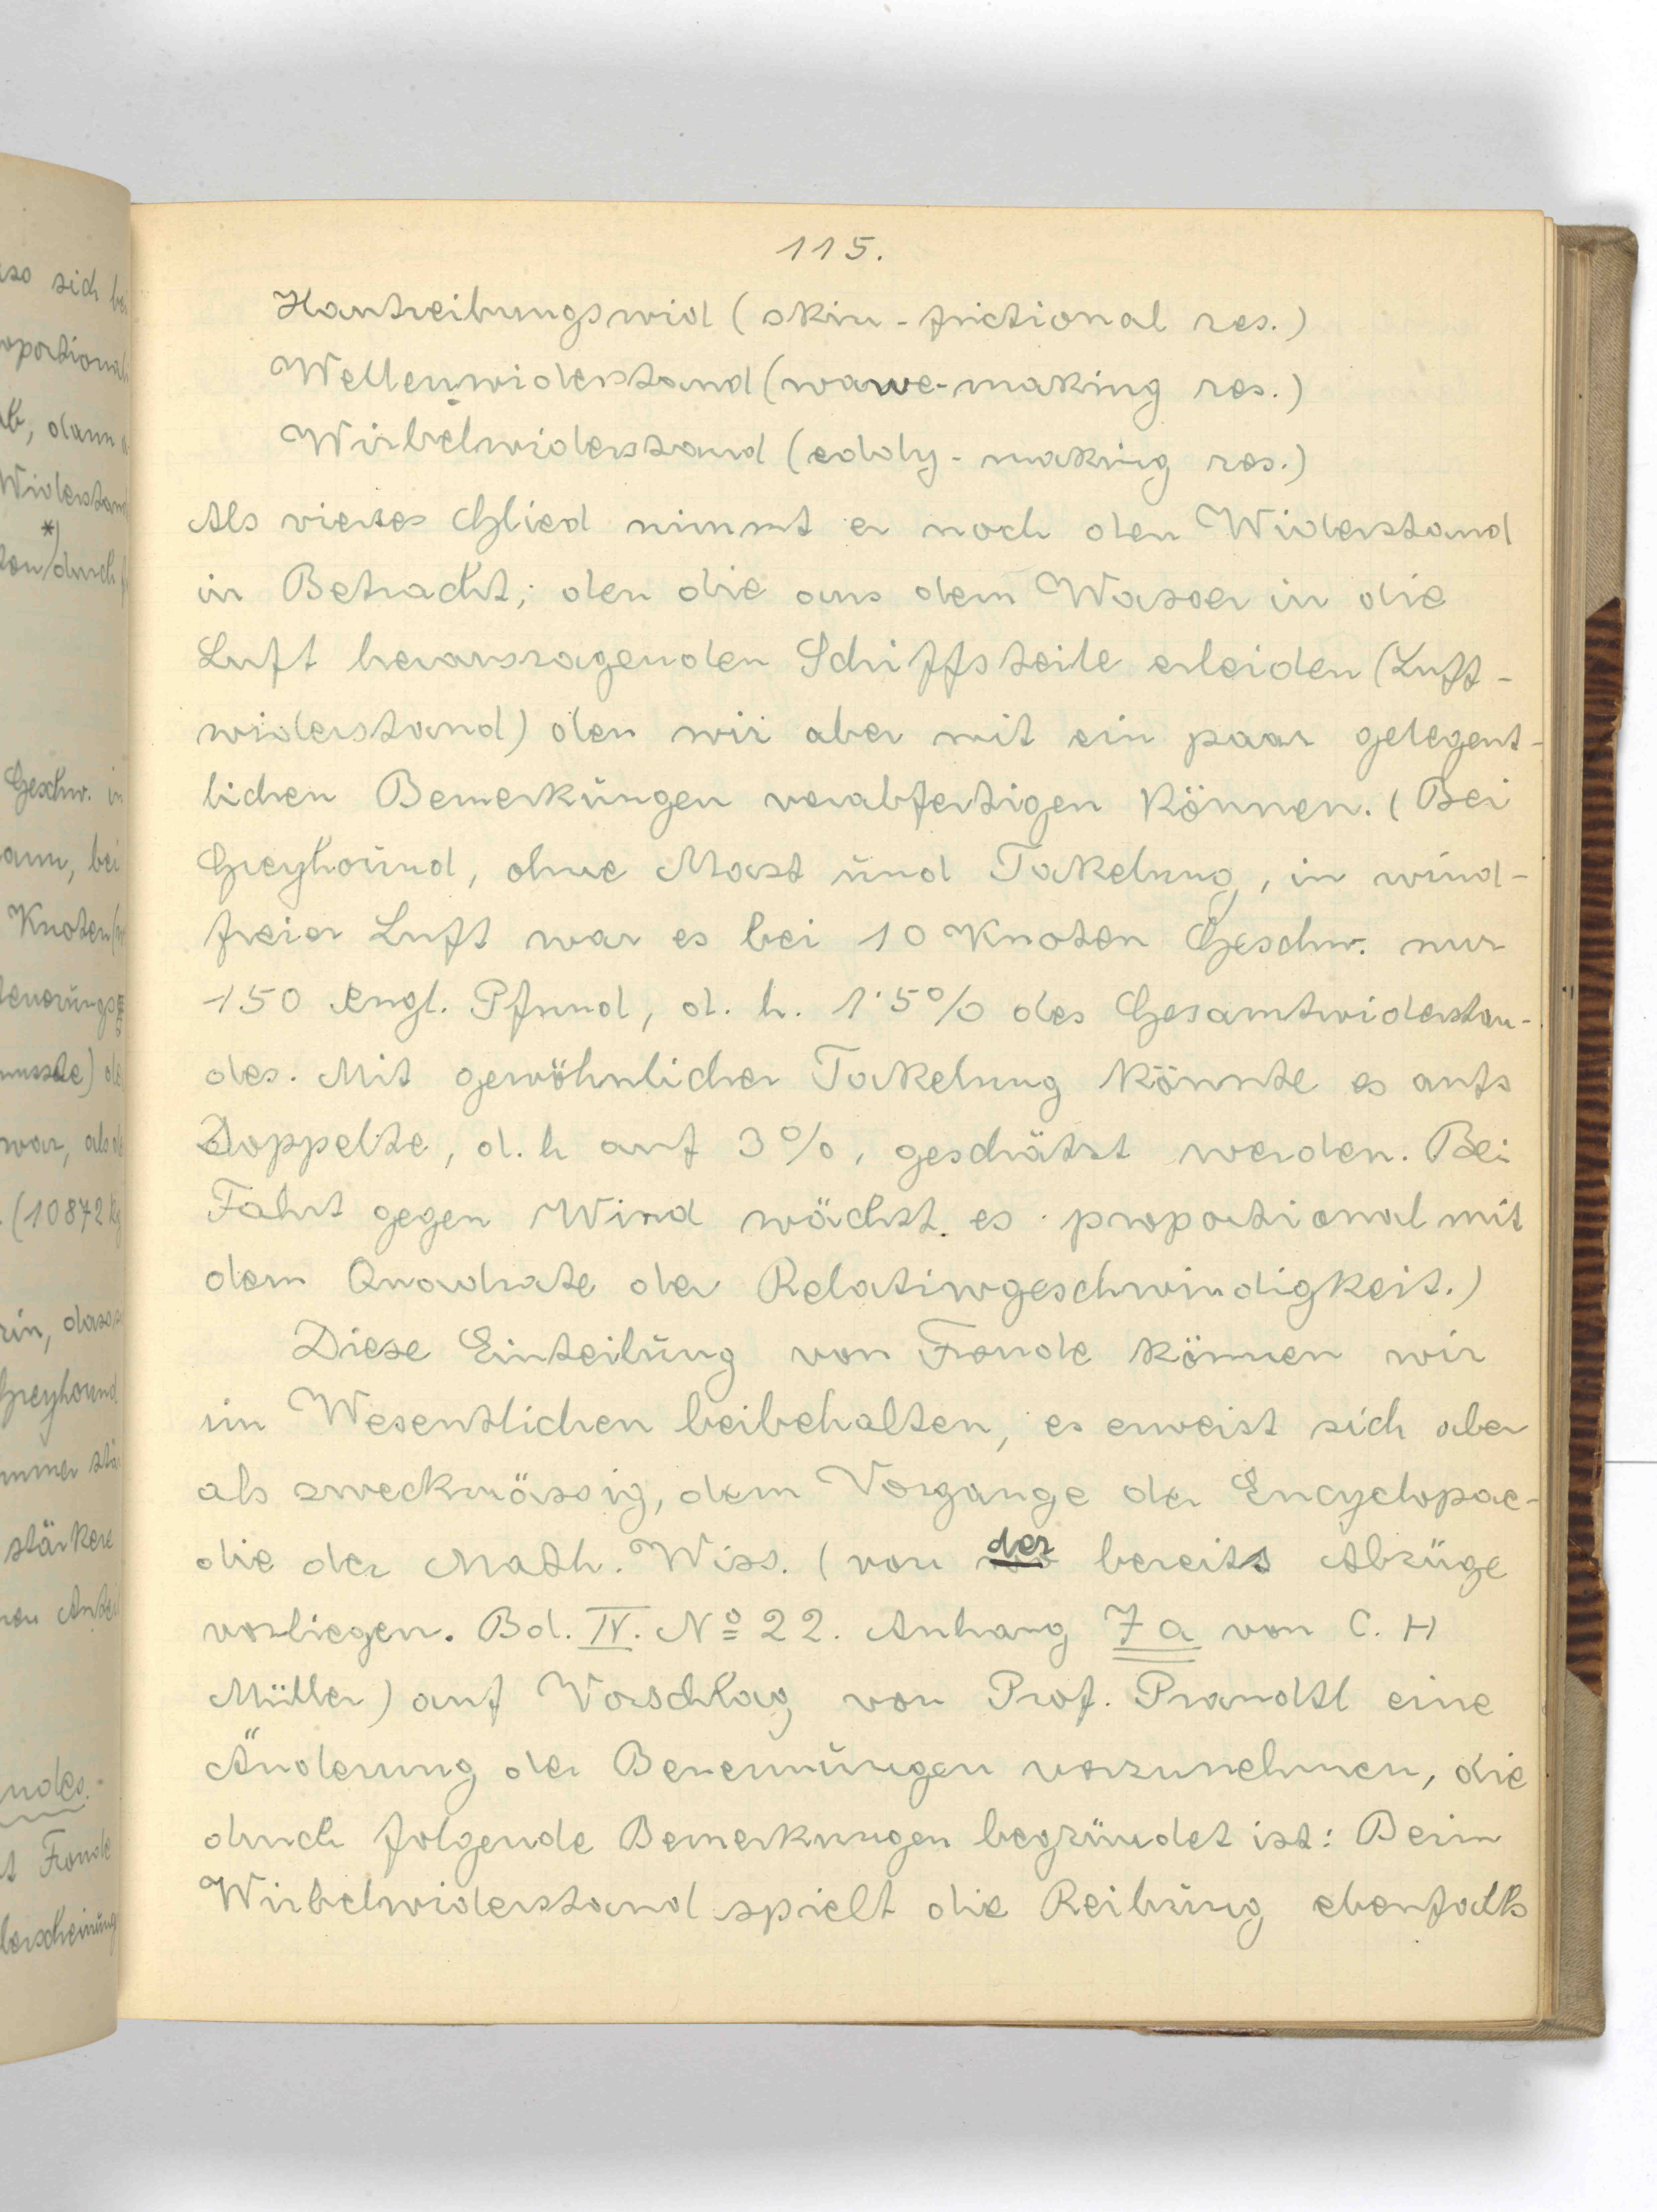 115.
Hautreibungswid (skin-frictional res.)
Wellenwiderstand (wawe-making res.)
Wirbelwiderstand (eddy-making res.)
Als viertes Glied nimmt er noch den Widerstand
in Betracht; den die aus dem Wasser in die
Luft herausragenden Schiffsteile erleiden (Luft-
widerstand) den wir aber mit ein paar gelegent-
lichen Bemerkungen verabfertigen können. (Bei
Greyhound, ohne Mast und Takelung, in wind-
freier Luft war es bei 10 Knoten Geschw. nur
150 engl. Pfund, d. h. 1·5% des Gesamtwiderstan-
des. Mit gewöhnlicher Takelung könnte es aufs
Doppelte, d. h auf 3%, geschätzt werden. Bei
Fahrt gegen Wind wächst es proportional mit
dem Quadrate der Relativgeschwindigkeit.)
Diese Einteilung von Froude können wir
im Wesentlichen beibehalten, es erweist sich aber
als zweckmässig, dem Vorgange der Encyclopae-
die der Math. Wiss. (von der bereits Abzüge
vorliegen. Bd. IV. Nº 22. Anhang 7a von C. H
Müller) auf Vorschlag von Prof. Prandtl eine
Änderung der Benennungen vorzunehmen, die
durch folgende Bemerkungen begründet ist: Beim
Wirbelwiderstand spielt die Reibung ebenfalls
so sich be
oportional
ab, dann
Widerstand
*)
durch
Geschw. in
ann, bei
Knoten
teuerungs
musste)
war, als
(10872 kg
rin, dass
Greyhound
immer
stärkere
ndes.
Froude
erscheinung